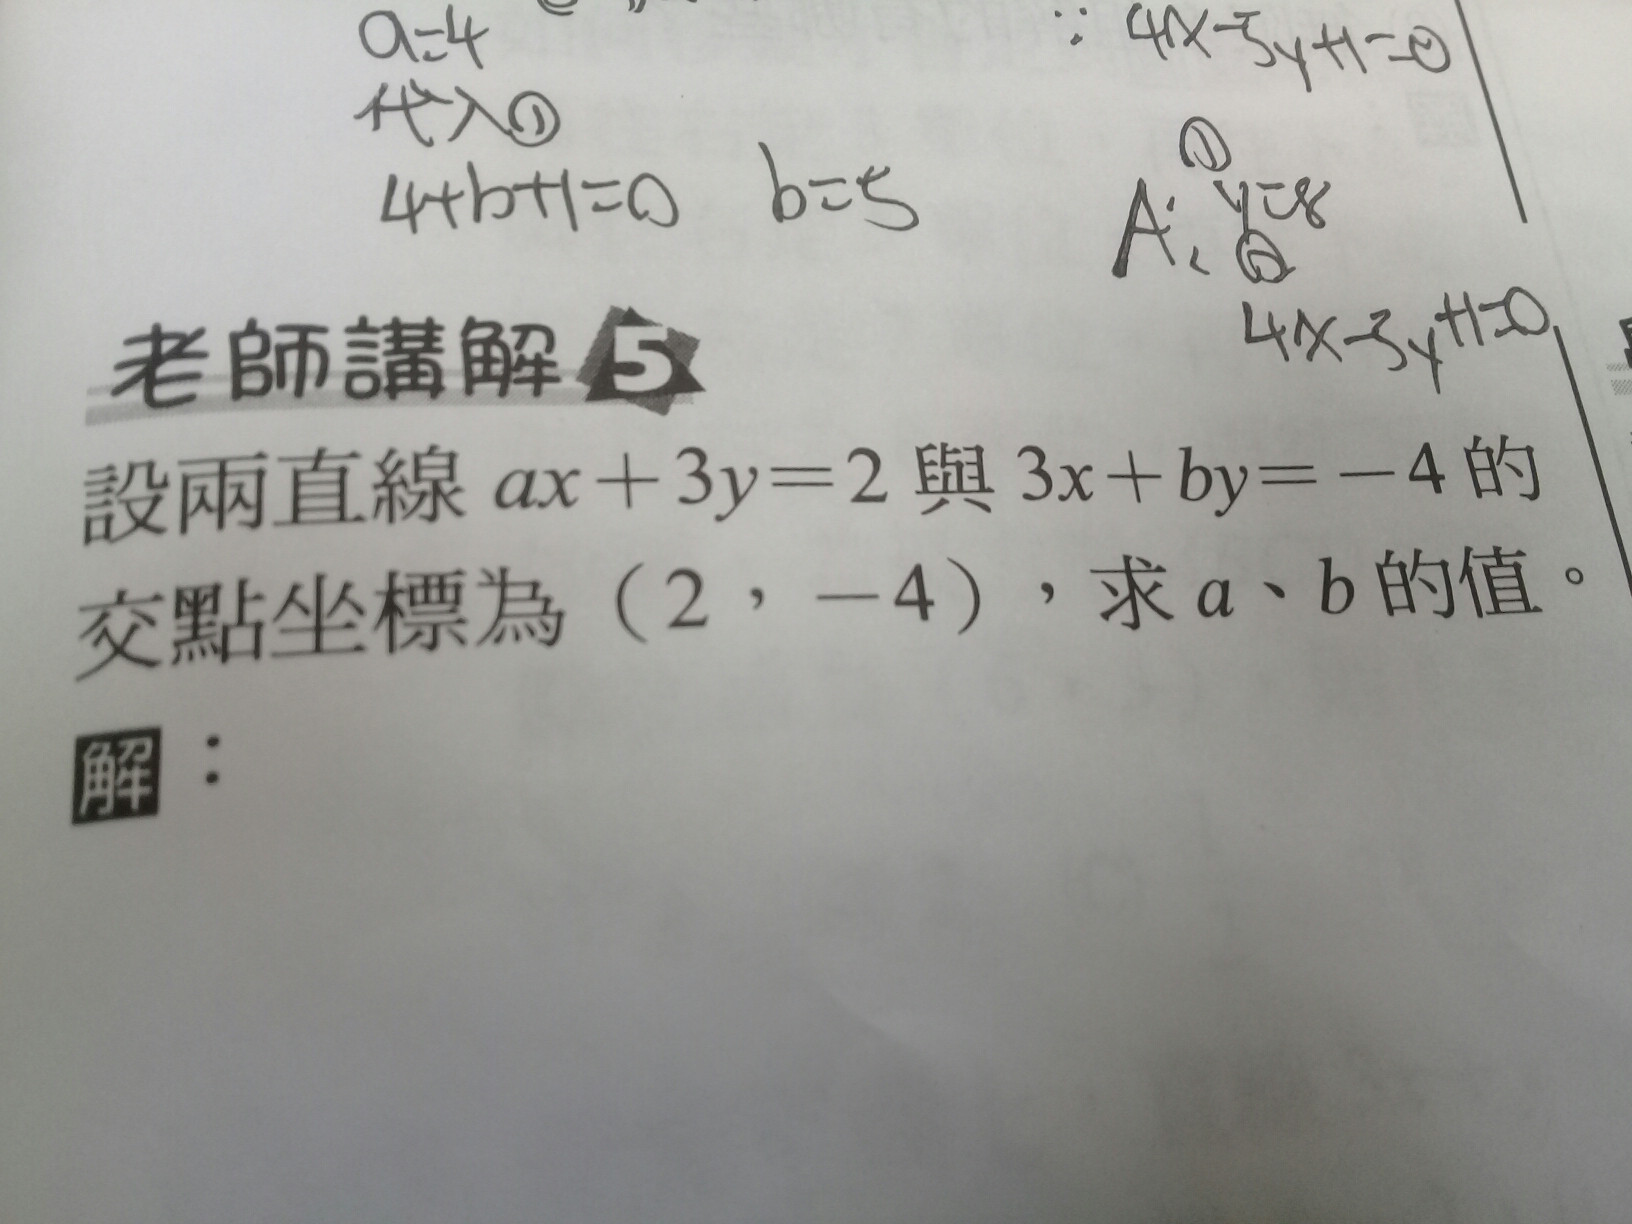 a=4
∵ 4x-5y+1=0
代入①
4+b+1=0 b=5
A: ① y=8
②
4x-5y+1=0
老師講解 5
設兩直線 ax+3y=2 與 3x+by=-4 的
交點坐標為(2,-4),求 a、b 的值。
解: